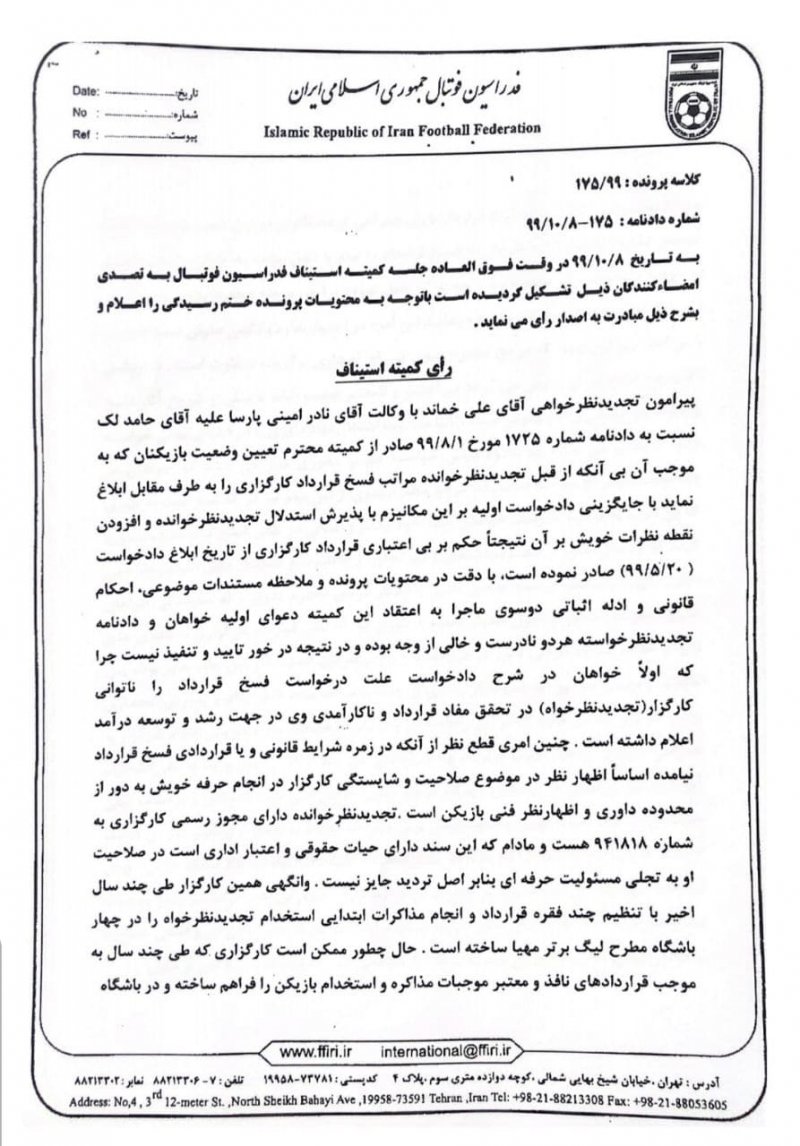 فدراسیون فوتبال جمهوری اسلامی ایران
Islamic Republic of Iran Football Federation
Date: ............ تاریخ:
No : ............ شماره:
Ref : ............ پیوست:
کلاسه پرونده : ۱۷۵/۹۹
شماره دادنامه: ۱۷۵-۹۹/۱۰/۸
به تاریخ ۹۹/۱۰/۸ در وقت فوق العاده جلسه کمیته استیناف فدراسیون فوتبال به تصدی
امضاءکنندگان ذیل تشکیل گردیده است باتوجه به محتویات پرونده ختم رسیدگی را اعلام و
بشرح ذیل مبادرت به اصدار رأی می نماید .
رأی کمیته استیناف
پیرامون تجدیدنظرخواهی آقای علی خماند با وکالت آقای نادر امینی پارسا علیه آقای حامد لک
نسبت به دادنامه شماره ۱۷۲۵ مورخ ۹۹/۸/۱ صادر از کمیته محترم تعیین وضعیت بازیکنان که به
موجب آن بی آنکه از قبل تجدیدنظرخوانده مراتب فسخ قرارداد کارگزاری را به طرف مقابل ابلاغ
نماید با جایگزینی دادخواست اولیه بر این مکانیزم با پذیرش استدلال تجدیدنظرخوانده و افزودن
نقطه نظرات خویش بر آن نتیجتاً حکم بر بی اعتباری قرارداد کارگزاری از تاریخ ابلاغ دادخواست
( ۹۹/۵/۲۰) صادر نموده است، با دقت در محتویات پرونده و ملاحظه مستندات موضوعی، احکام
قانونی و ادله اثباتی دوسوی ماجرا به اعتقاد این کمیته دعوای اولیه خواهان و دادنامه
تجدیدنظرخواسته هردو نادرست و خالی از وجه بوده و در نتیجه در خور تایید و تنفیذ نیست چرا
که اولاً خواهان در شرح دادخواست علت درخواست فسخ قرارداد را ناتوانی
کارگزار(تجدیدنظرخواه) در تحقق مفاد قرارداد و ناکارآمدی وی در جهت رشد و توسعه درآمد
اعلام داشته است . چنین امری قطع نظر از آنکه در زمره شرایط قانونی و یا قراردادی فسخ قرارداد
نیامده اساساً اظهار نظر در موضوع صلاحیت و شایستگی کارگزار در انجام حرفه خویش به دور از
محدوده داوری و اظهارنظر فنی بازیکن است .تجدیدنظرخوانده دارای مجوز رسمی کارگزاری به
شماره ۹۴۱۸۱۸ هست و مادام که این سند دارای حیات حقوقی و اعتبار اداری است در صلاحیت
او به تجلی مسئولیت حرفه ای بنابر اصل تردید جایز نیست . وانگهی همین کارگزار طی چند سال
اخیر با تنظیم چند فقره قرارداد و انجام مذاکرات ابتدایی استخدام تجدیدنظرخواه را در چهار
باشگاه مطرح لیگ برتر مهیا ساخته است . حال چطور ممکن است کارگزاری که طی چند سال به
موجب قراردادهای نافذ و معتبر موجبات مذاکره و استخدام بازیکن را فراهم ساخته و در باشگاه
www.ffiri.ir international@ffiri.ir
آدرس : تهران ،خیابان شیخ بهایی شمالی ،کوچه دوازده متری سوم ،پلاک ۴ کدپستی: ۷۳۷۸۱-۱۹۹۵۸ تلفن : ۷-۸۸۲۱۳۳۰۶ نمابر: ۸۸۲۱۳۳۰۲
Address: No,4 , 3rd 12-meter St. ,North Sheikh Bahayi Ave ,19958-73591 Tehran ,Iran Tel: +98-21-88213308 Fax: +98-21-88053605